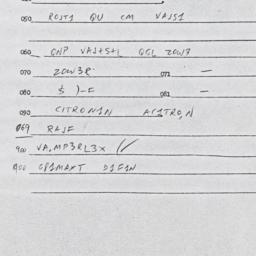 050 ROST1 QU CM VAJS1
060 GNP VAJ+S+L QGL ZOW3
070 ZOW3R 071 —
080 5 )-F 081 —
090 CITRON1N AC1TRO,N
069 RAJF
900 VA.MP3RL3X
GP1MAXT D1F1N